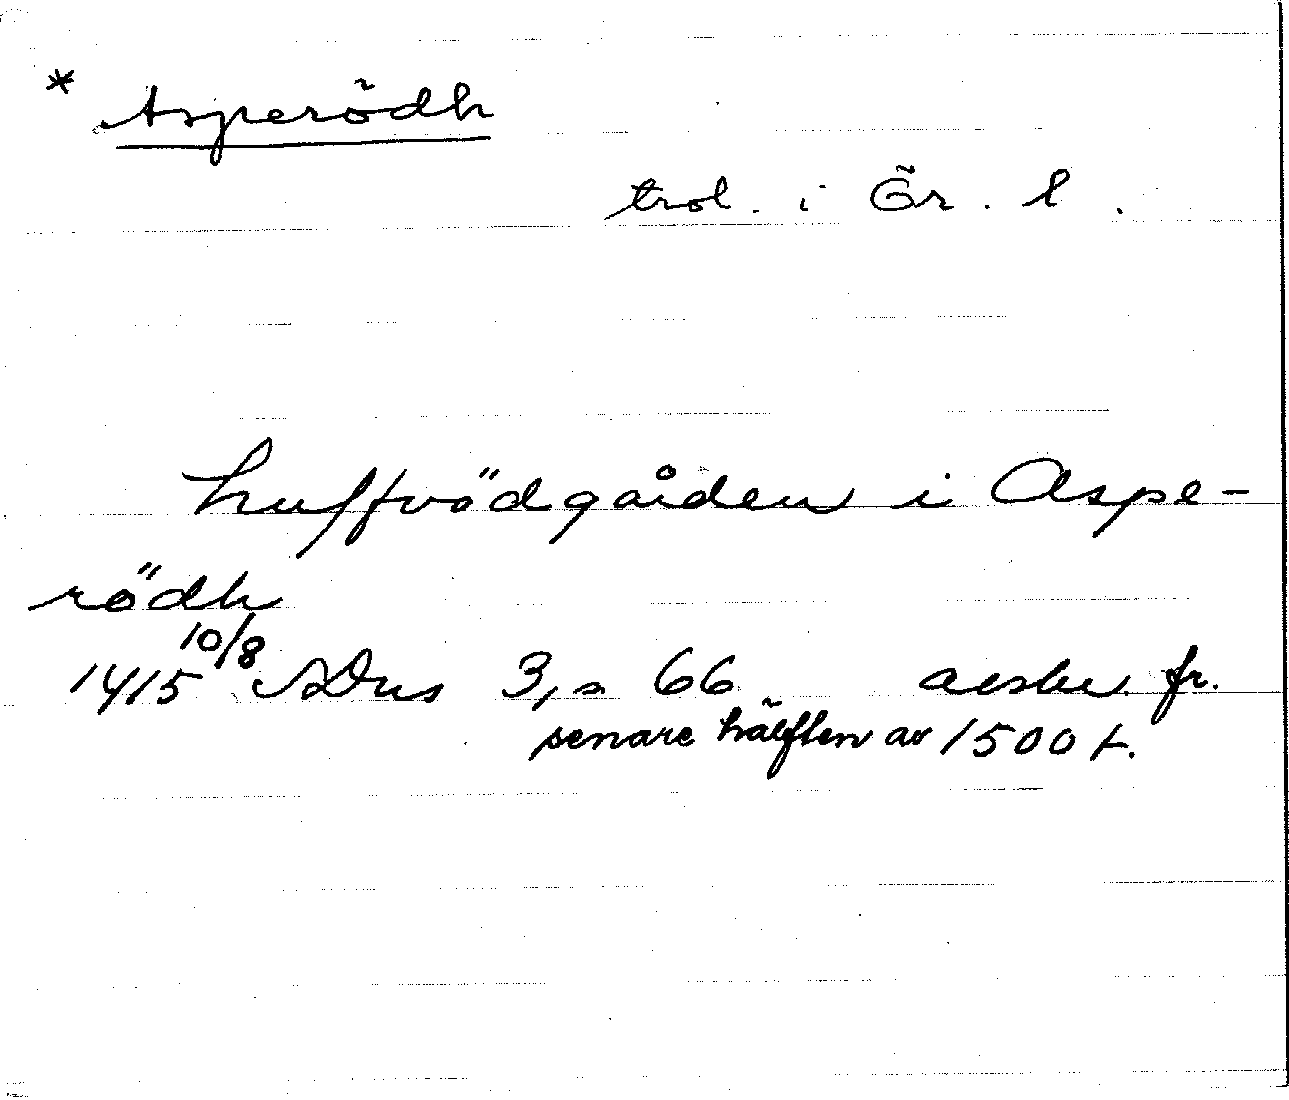 * Asperödh
trol. i Ör. l.
huffvödgården i Aspe-
rödh
1415 10/8 SDns 3, s 66. avskr. fr.
senare hälften av 1500 t.